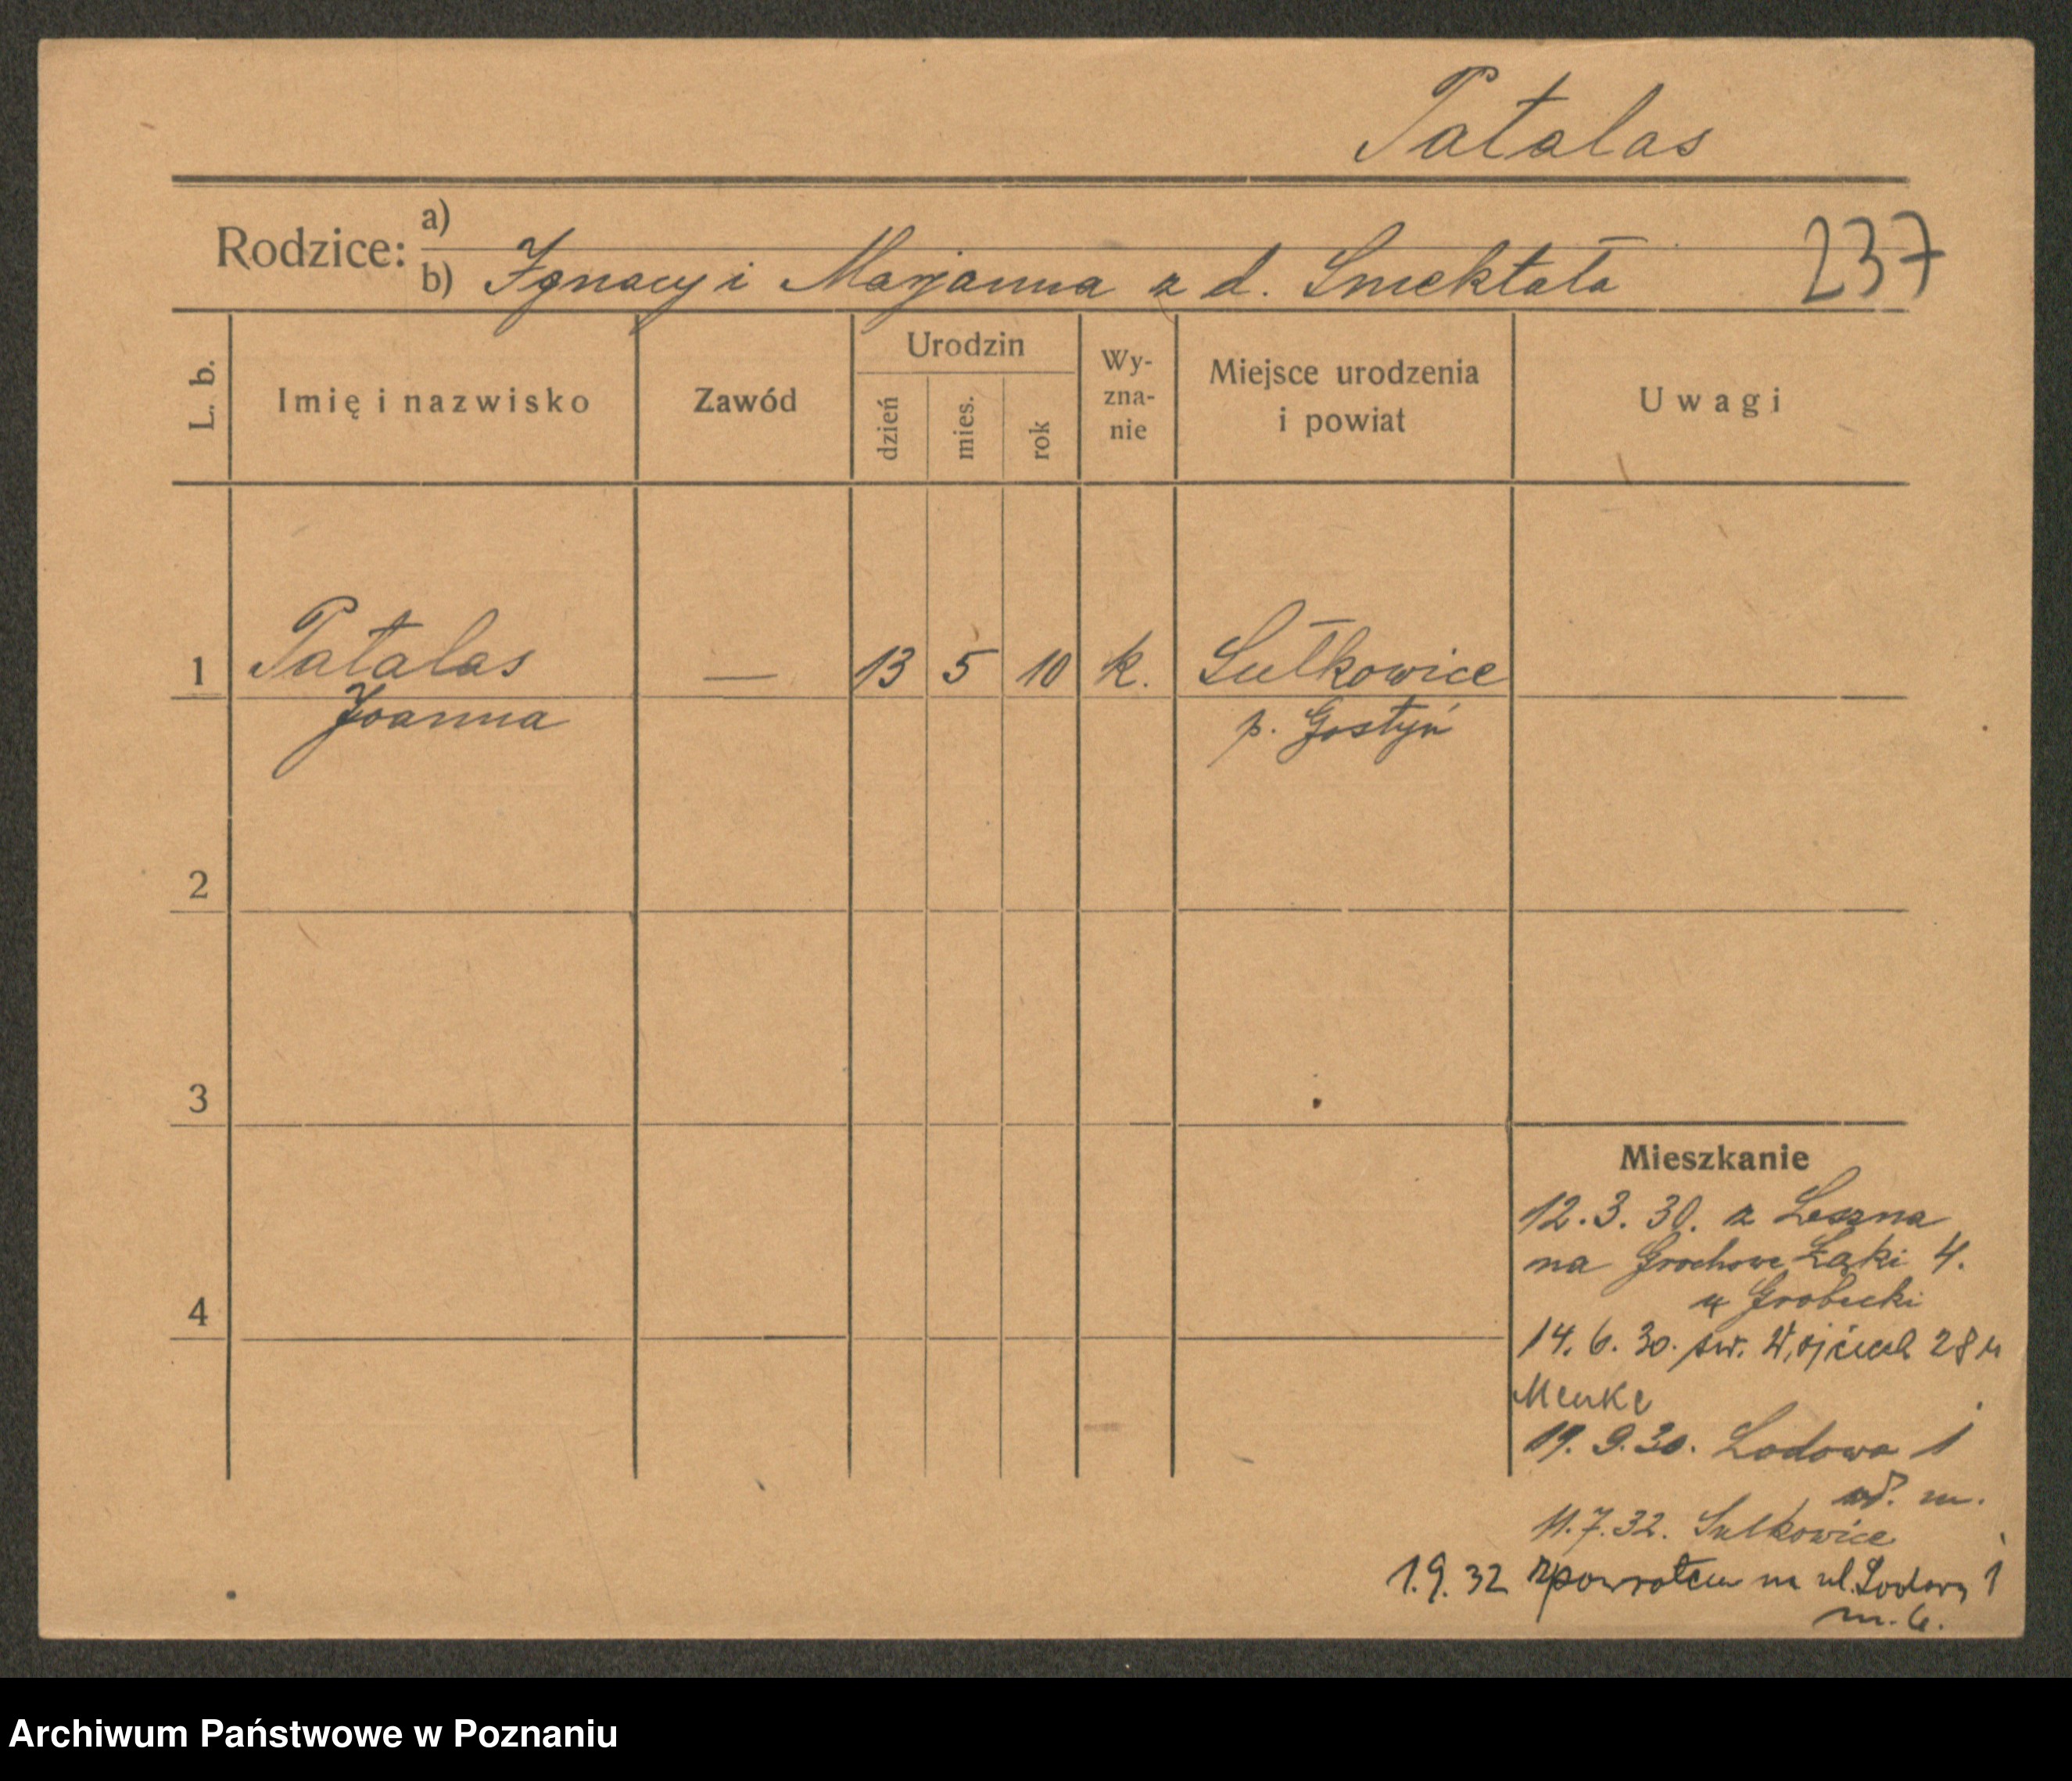 Patalas
Rodzice: a)
b) Ignacy i Marjanna z d. Smektała
237
L. b.
Imię i nazwisko
Zawód
Urodzin
dzień
mies.
rok
Wy-
zna-
nie
Miejsce urodzenia
i powiat
Uwagi
1 Patalas — 13 5 10 k. Sułkowice
Joanna p. Gostyń
2
3
4
Mieszkanie
12.3.30. z Leszna
na Grochowe Łąki 4.
u Grobecki
14.6.30. św. Wojciech 28 u
Menke
19.9.30. Lodowa 1
m.
11.7.32. Sulkowice
1.9.32 zpowrotem na ul. Lodową 1
m. 6.
Archiwum Państwowe w Poznaniu